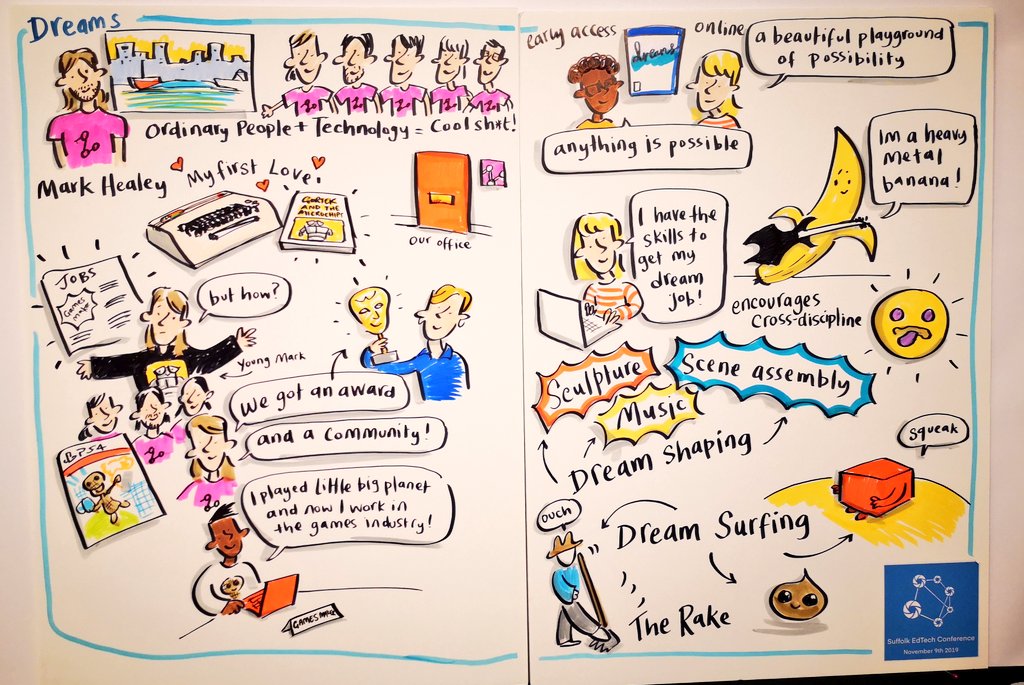 Dreams
Ordinary People + Technology = Cool sh*t!
Mark Healey
My first Love.
GORTEK
AND THE
MICROCHIPS
our office
JOBS
Games
Maker
but how?
Young Mark
We got an award
and a community!
I played Little big planet
and now I work in
the games industry!
early access
dreams
online
a beautiful playground
of possibility
anything is possible
Im a heavy
metal
banana!
I have the
skills to
get my
dream
job!
encourages
cross-discipline
Sculpture
Scene assembly
Music
Dream Shaping
squeak
ouch
Dream Surfing
The Rake
Suffolk EdTech Conference
November 9th 2019